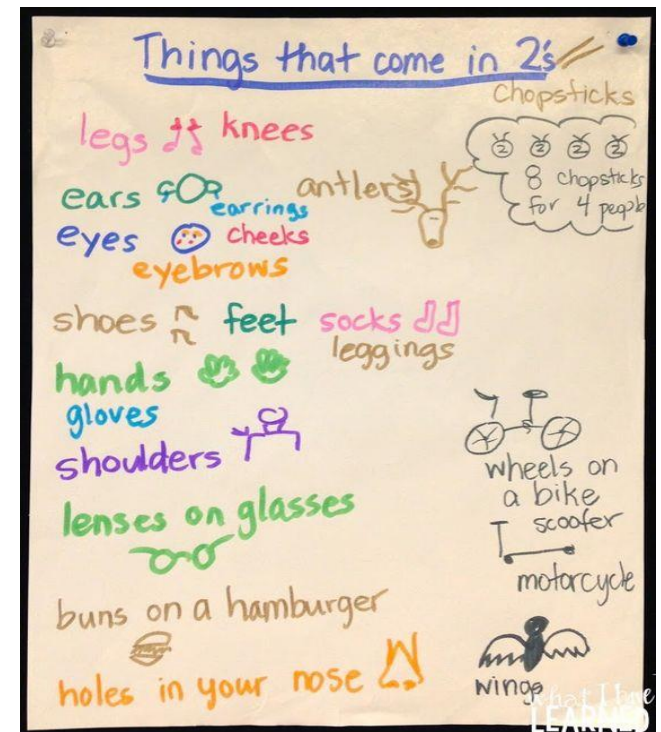 Things that come in 2's
chopsticks
legs knees
2 2 2 2
8 chopsticks
for 4 people
ears antlers
earrings
eyes cheeks
eyebrows
shoes feet socks
leggings
hands
gloves
shoulders
wheels on
a bike
lenses on glasses
scooter
motorcycle
buns on a hamburger
holes in your nose
wings
what I have
LEARNED